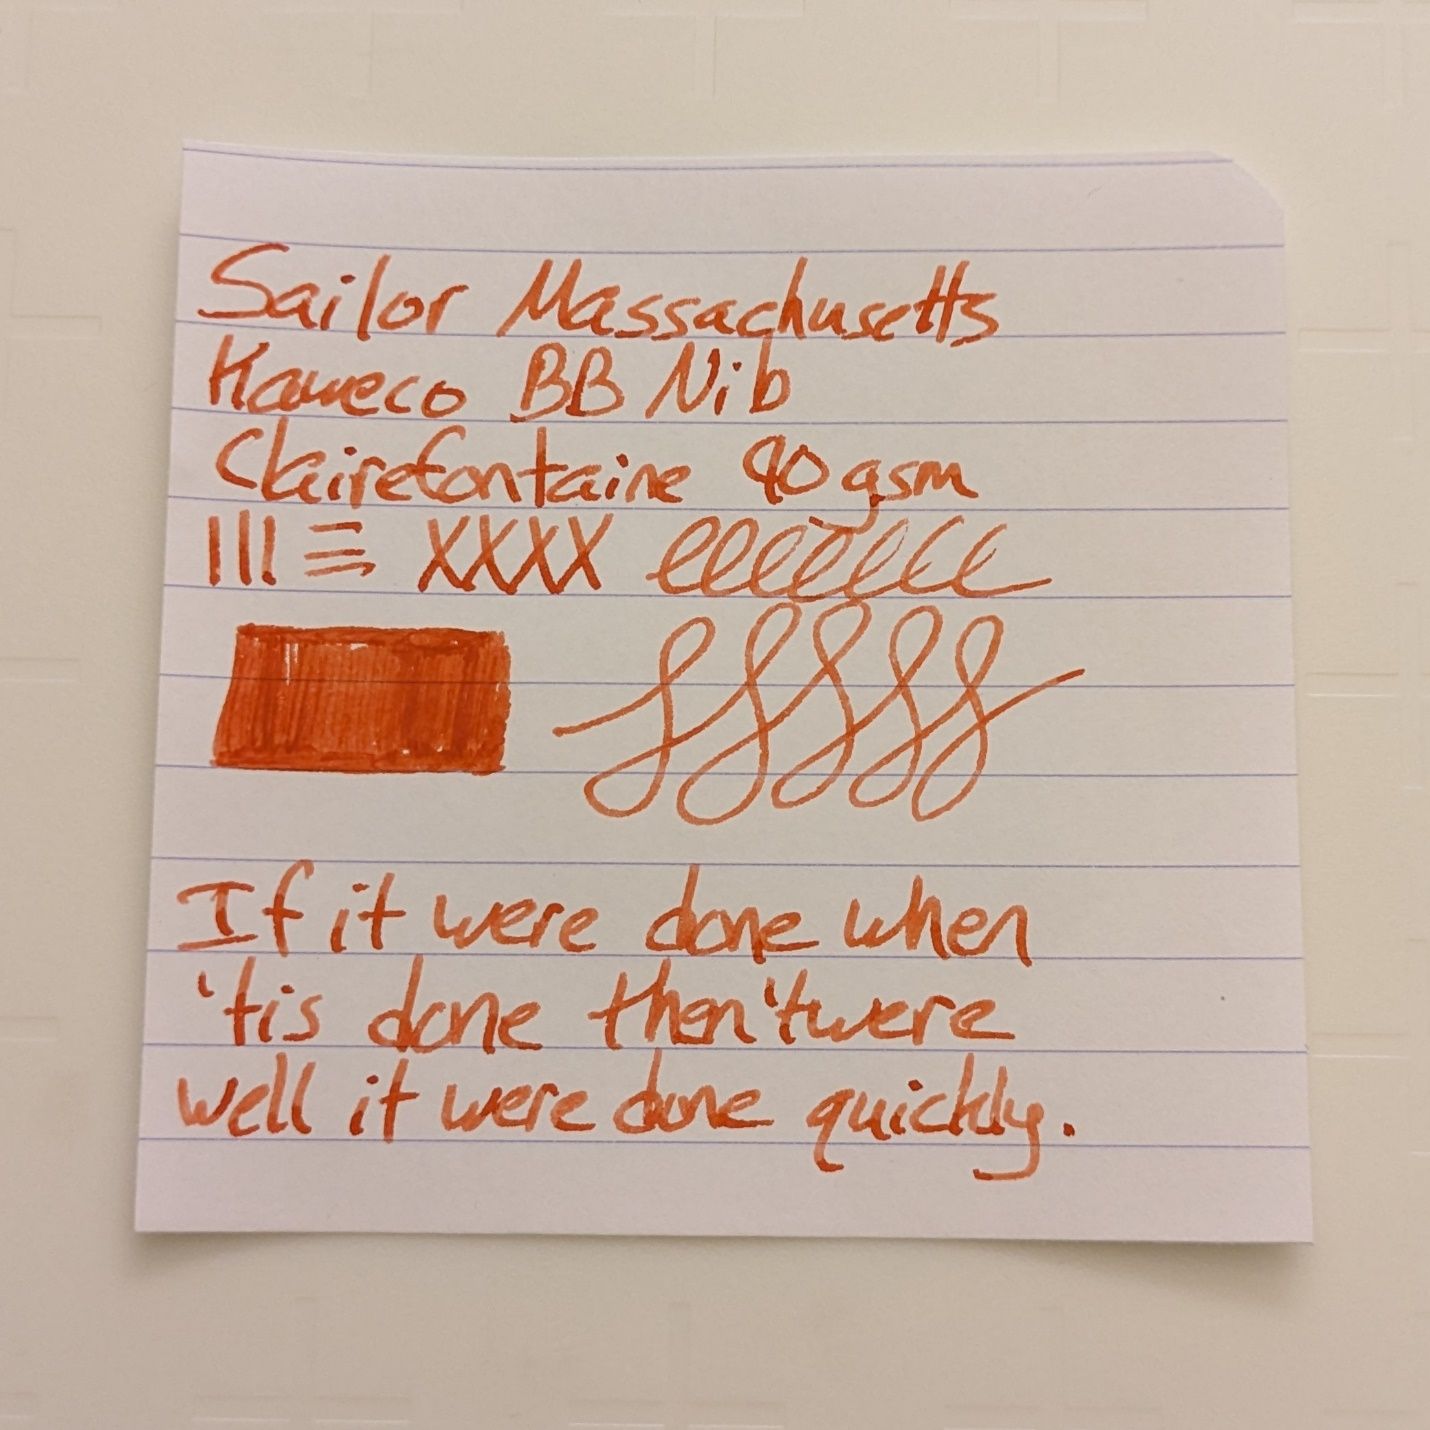 Sailor Massachusetts
Kaweco BB Nib
Clairefontaine 90gsm
||| ≡ XXXX eeeeeeee
If it were done when
'tis done then 'twere
well it were done quickly.